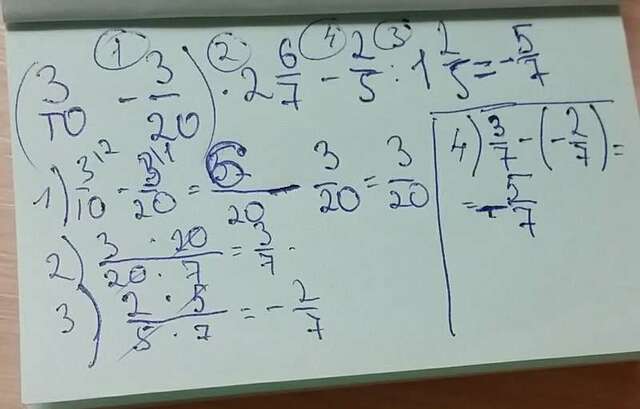 (3/10 - 3/20) · 2 6/7 - 2/5 : 1 2/5 = -5/7
1) 3/10 - 3/20 = 6/20 - 3/20 = 3/20
2) 3 · 20 / 20 · 7 = 3/7 ·
3) 2 · 5 / 5 · 7 = - 2/7
4) 3/7 - (-2/7) =
= -5/7